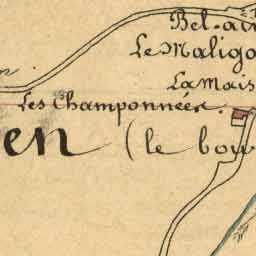 Bel-air
Le Maligo
La Mais
n.
Les Champonnées.
en (le bou